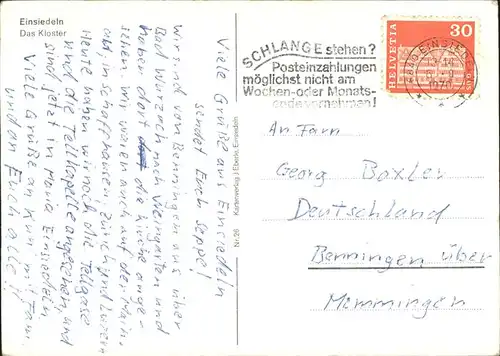 Einsiedeln
Das Kloster
Viele Grüße aus Einsiedeln
sendet Euch Seppe!
Wir sind von Benningen aus über
Bad Wurzach nach Weingarten und
haben dort die Kirche ange-
sehen. Wir waren auch auf der Main-
au, in Schaffhausen, Zürich und Luzern
Heute haben wir noch die Tellgasse
und die Tellkapelle angesehen und
sind jetzt in Maria Einsiedeln
Viele Grüße an Kuni mit Fam.
und an Euch alle!!
Nr. 26 Kartenverlag J. Eberle, Einsiedeln
SCHLANGE stehen?
Posteinzahlungen
möglichst nicht am
Wochen- oder Monats-
ende vornehmen!
8840 EINSIEDELN
HELVETIA
30
An Fam
Georg Boxler
Deutschland
Benningen über
Memmingen